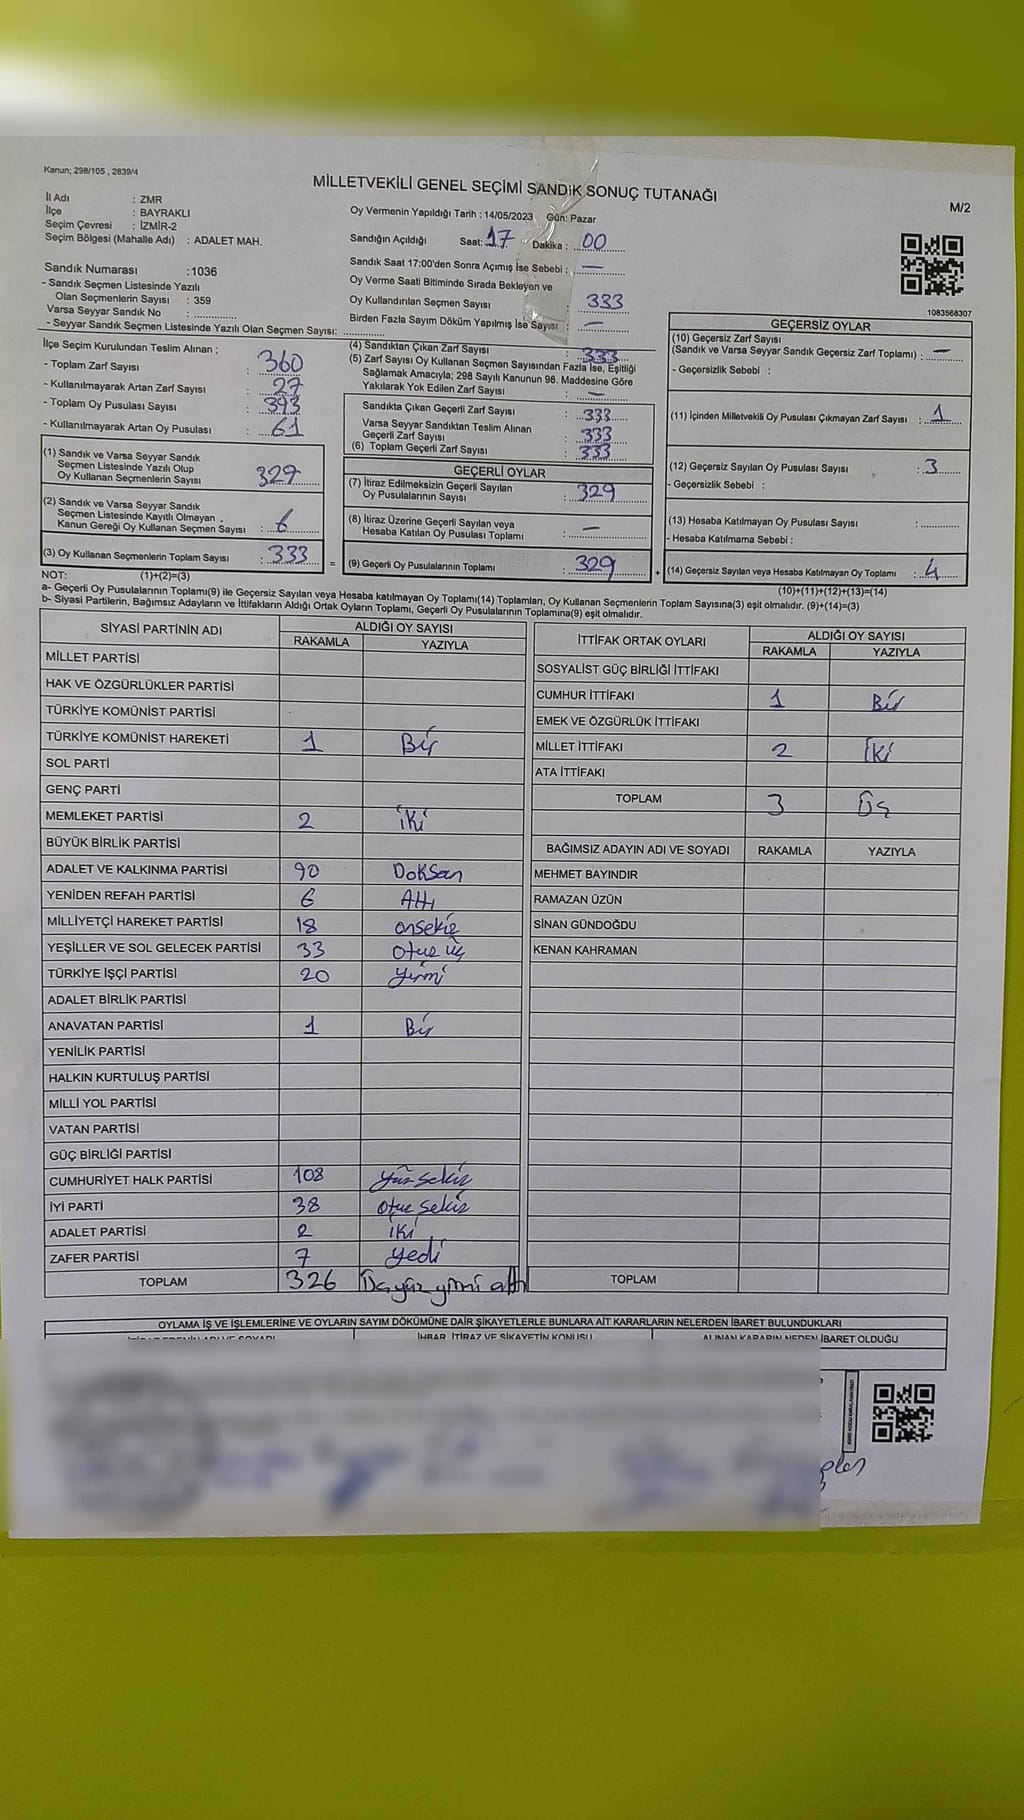 Kanun; 298/105 , 2839/4
MİLLETVEKİLİ GENEL SEÇİMİ SANDIK SONUÇ TUTANAĞI
M/2
İl Adı : ZMR
İlçe : BAYRAKLI
Seçim Çevresi : İZMİR-2
Seçim Bölgesi (Mahalle Adı) : ADALET MAH.
Sandık Numarası :1036
- Sandık Seçmen Listesinde Yazılı
Olan Seçmenlerin Sayısı : 359
Varsa Seyyar Sandık No :
- Seyyar Sandık Seçmen Listesinde Yazılı Olan Seçmen Sayısı:
Oy Vermenin Yapıldığı Tarih : 14/05/2023 Gün: Pazar
Sandığın Açıldığı Saat: 17 Dakika : 00
Sandık Saat 17:00'den Sonra Açımış İse Sebebi : —
Oy Verme Saati Bitiminde Sırada Bekleyen ve
Oy Kullandırılan Seçmen Sayısı : 333
Birden Fazla Sayım Döküm Yapılmış İse Sayısı : —
1083568307
İlçe Seçim Kurulundan Teslim Alınan ;
- Toplam Zarf Sayısı : 360
- Kullanılmayarak Artan Zarf Sayısı : 27
- Toplam Oy Pusulası Sayısı : 393
- Kullanılmayarak Artan Oy Pusulası : 61
(1) Sandık ve Varsa Seyyar Sandık
Seçmen Listesinde Yazılı Olup
Oy Kullanan Seçmenlerin Sayısı : 327
(2) Sandık ve Varsa Seyyar Sandık
Seçmen Listesinde Kayıtlı Olmayan
Kanun Gereği Oy Kullanan Seçmen Sayısı : 6
(3) Oy Kullanan Seçmenlerin Toplam Sayısı : 333
(4) Sandıktan Çıkan Zarf Sayısı : 333
(5) Zarf Sayısı Oy Kullanan Seçmen Sayısından Fazla İse, Eşitliği
Sağlamak Amacıyla; 298 Sayılı Kanunun 98. Maddesine Göre
Yakılarak Yok Edilen Zarf Sayısı : —
Sandıkta Çıkan Geçerli Zarf Sayısı : 333
Varsa Seyyar Sandıktan Teslim Alınan
Geçerli Zarf Sayısı : 333
(6) Toplam Geçerli Zarf Sayısı : 333
GEÇERLİ OYLAR
(7) İtiraz Edilmeksizin Geçerli Sayılan
Oy Pusulalarının Sayısı : 329
(8) İtiraz Üzerine Geçerli Sayılan veya
Hesaba Katılan Oy Pusulası Toplamı : —
= (9) Geçerli Oy Pusulalarının Toplamı : 329
GEÇERSİZ OYLAR
(10) Geçersiz Zarf Sayısı
(Sandık ve Varsa Seyyar Sandık Geçersiz Zarf Toplamı) : —
- Geçersizlik Sebebi :
(11) İçinden Milletvekili Oy Pusulası Çıkmayan Zarf Sayısı : 1
(12) Geçersiz Sayılan Oy Pusulası Sayısı : 3
- Geçersizlik Sebebi :
(13) Hesaba Katılmayan Oy Pusulası Sayısı :
- Hesaba Katılmama Sebebi :
+ (14) Geçersiz Sayılan veya Hesaba Katılmayan Oy Toplamı : 4
NOT: (1)+(2)=(3)
(10)+(11)+(12)+(13)=(14)
a- Geçerli Oy Pusulalarının Toplamı(9) ile Geçersiz Sayılan veya Hesaba katılmayan Oy Toplamı(14) Toplamları, Oy Kullanan Seçmenlerin Toplam Sayısına(3) eşit olmalıdır. (9)+(14)=(3)
b- Siyasi Partilerin, Bağımsız Adayların ve İttifakların Aldığı Ortak Oyların Toplamı, Geçerli Oy Pusulalarının Toplamına(9) eşit olmalıdır.
SİYASİ PARTİNİN ADI ALDIĞI OY SAYISI
RAKAMLA YAZIYLA
MİLLET PARTİSİ
HAK VE ÖZGÜRLÜKLER PARTİSİ
TÜRKİYE KOMÜNİST PARTİSİ
TÜRKİYE KOMÜNİST HAREKETİ 1 Bir
SOL PARTİ
GENÇ PARTİ
MEMLEKET PARTİSİ 2 iki
BÜYÜK BİRLİK PARTİSİ
ADALET VE KALKINMA PARTİSİ 90 Doksan
YENİDEN REFAH PARTİSİ 6 Altı
MİLLİYETÇİ HAREKET PARTİSİ 18 onsekiz
YEŞİLLER VE SOL GELECEK PARTİSİ 33 otuz üç
TÜRKİYE İŞÇİ PARTİSİ 20 yirmi
ADALET BİRLİK PARTİSİ
ANAVATAN PARTİSİ 1 Bir
YENİLİK PARTİSİ
HALKIN KURTULUŞ PARTİSİ
MİLLİ YOL PARTİSİ
VATAN PARTİSİ
GÜÇ BİRLİĞİ PARTİSİ
CUMHURİYET HALK PARTİSİ 108 yüz sekiz
İYİ PARTİ 38 otuz sekiz
ADALET PARTİSİ 2 iki
ZAFER PARTİSİ 7 yedi
TOPLAM 326 Üçyüz yirmi altı
İTTİFAK ORTAK OYLARI ALDIĞI OY SAYISI
RAKAMLA YAZIYLA
SOSYALİST GÜÇ BİRLİĞİ İTTİFAKI
CUMHUR İTTİFAKI 1 Bir
EMEK VE ÖZGÜRLÜK İTTİFAKI
MİLLET İTTİFAKI 2 İki
ATA İTTİFAKI
TOPLAM 3 Üç
BAĞIMSIZ ADAYIN ADI VE SOYADI RAKAMLA YAZIYLA
MEHMET BAYINDIR
RAMAZAN ÜZÜN
SİNAN GÜNDOĞDU
KENAN KAHRAMAN
TOPLAM
OYLAMA İŞ VE İŞLEMLERİNE VE OYLARIN SAYIM DÖKÜMÜNE DAİR ŞİKAYETLERLE BUNLARA AİT KARARLARIN NELERDEN İBARET BULUNDUKLARI
İTİRAZ EDENİN ADI VE SOYADI İHBAR, İTİRAZ VE ŞİKAYETİN KONUSU ALINAN KARARIN NEDEN İBARET OLDUĞU